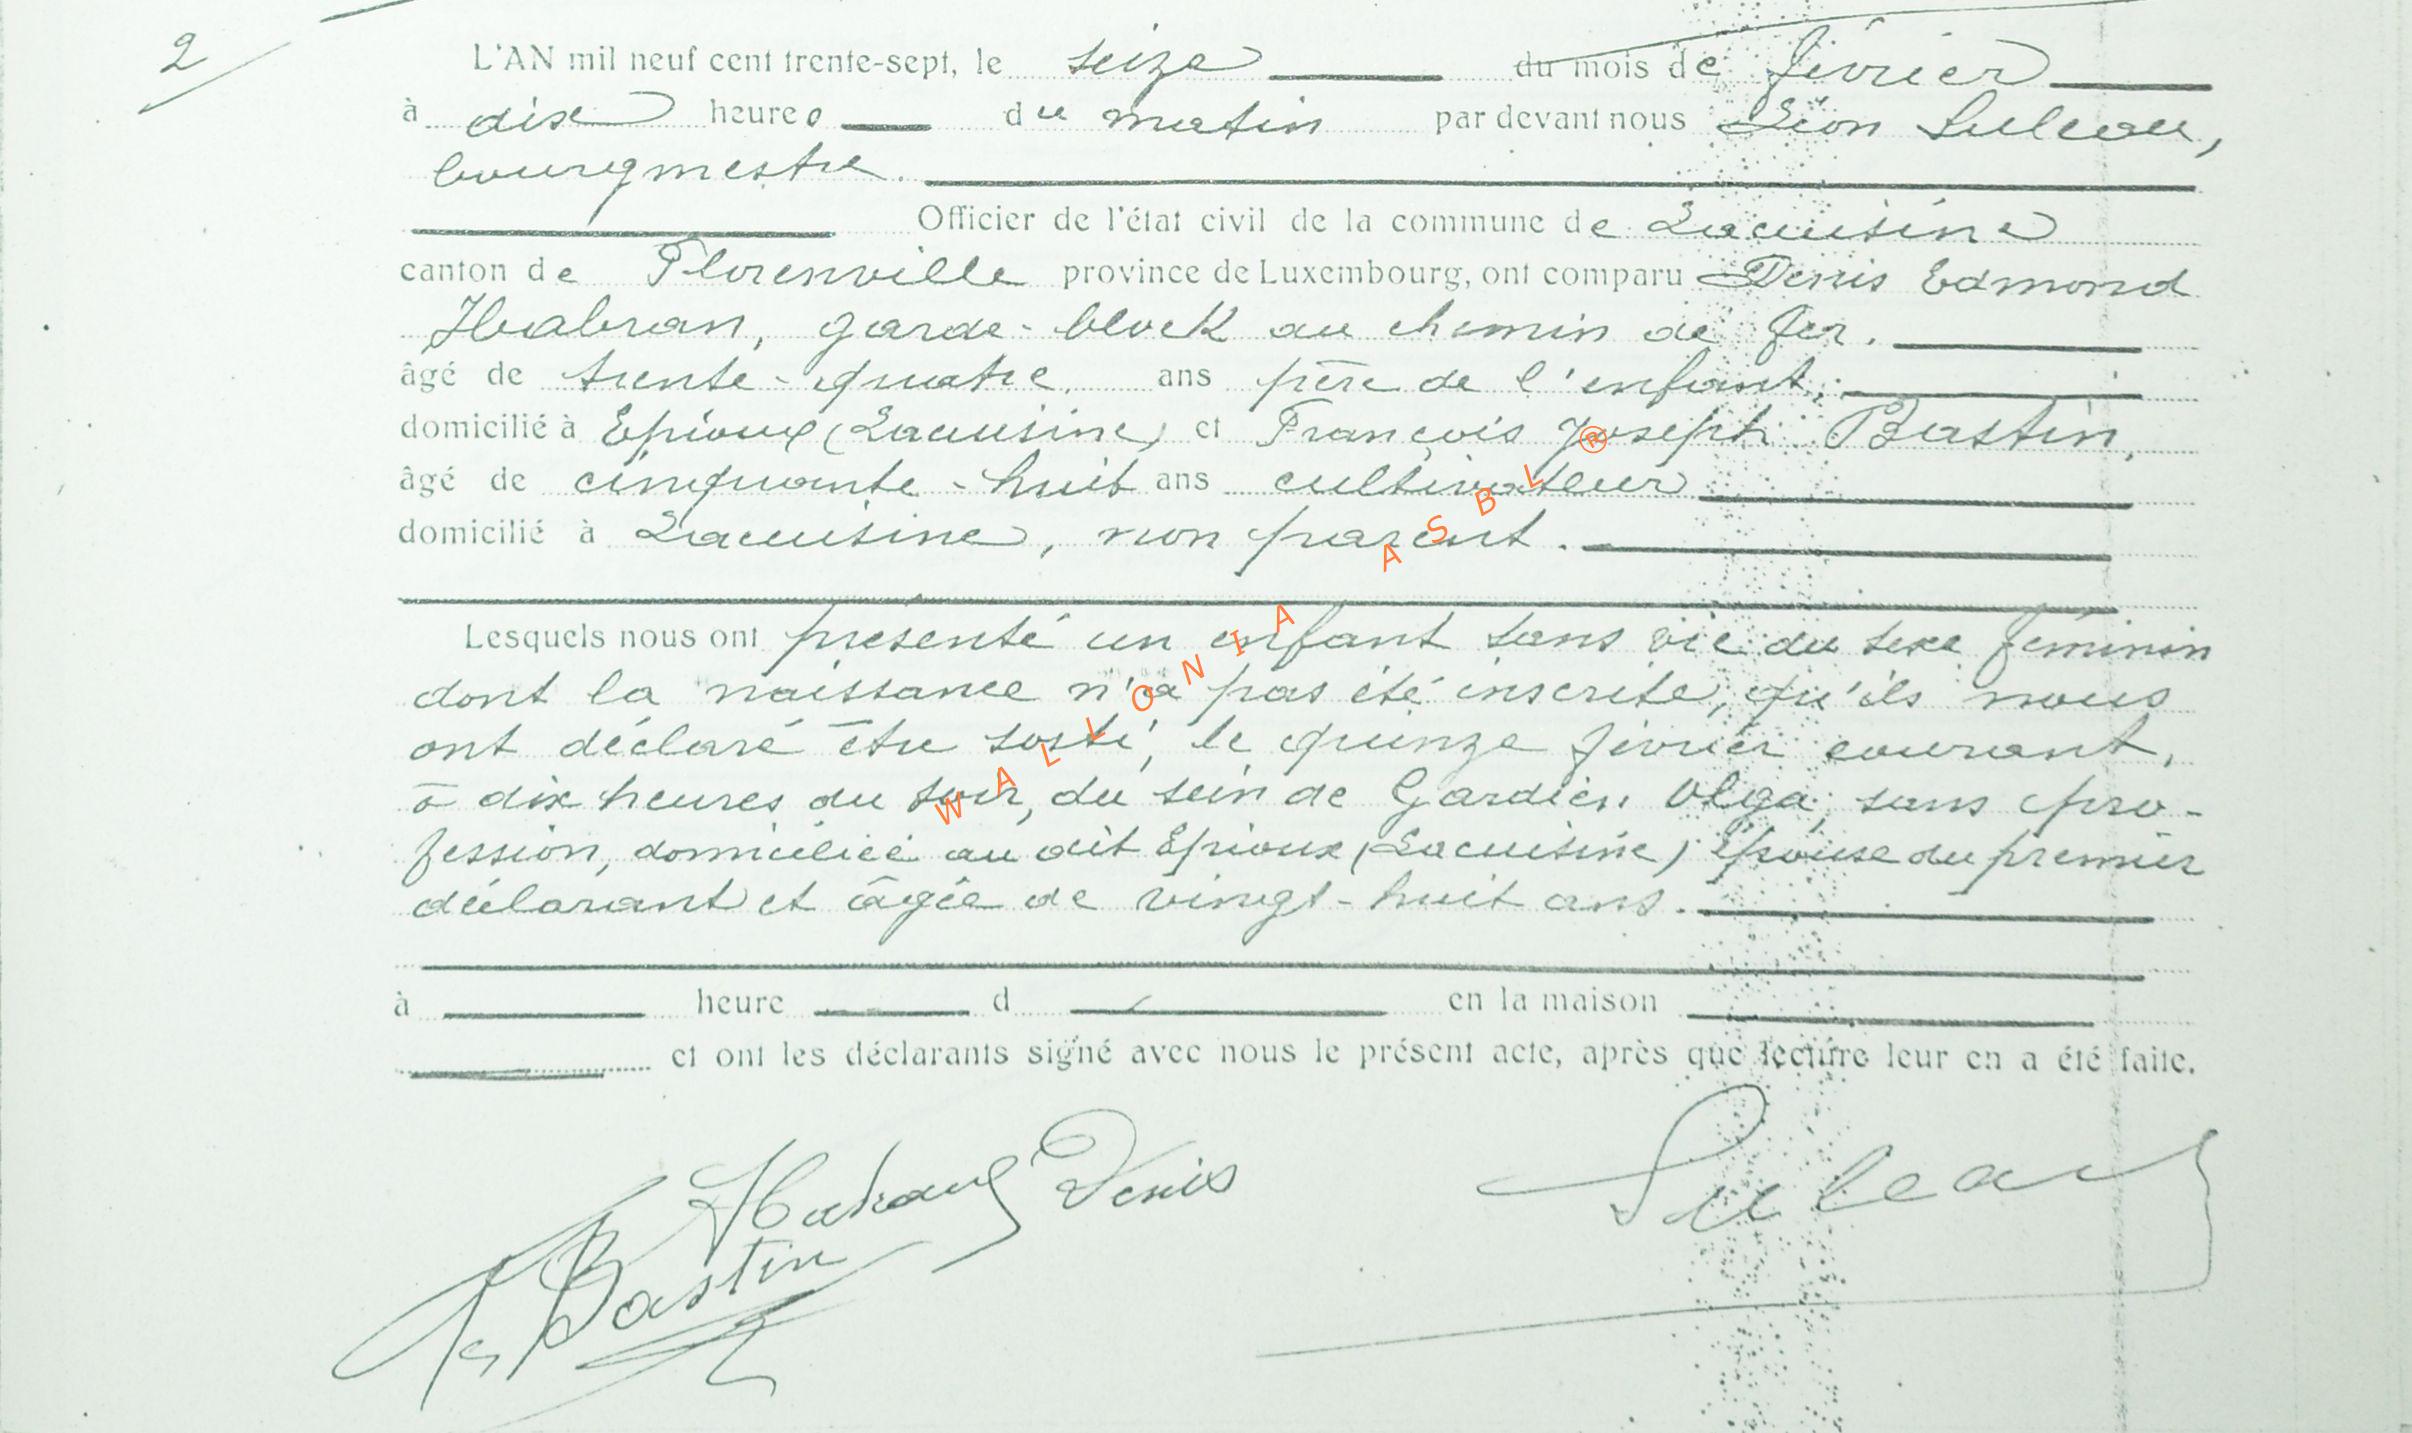 2
L'AN mil neuf cent trente-sept, le seize du mois de février
à dix heures du matin par devant nous Léon Suleau,
bourgmestre.
Officier de l'état civil de la commune de Lacuisine
canton de Florenville province de Luxembourg, ont comparu Denis Edmond
Habran, garde-block au chemin de fer.
âgé de trente-quatre ans père de l'enfant,
domicilié à Epioux (Lacuisine) et François Joseph Bastin,
âgé de cinquante-huit ans cultivateur
domicilié à Lacuisine, non parent.
Lesquels nous ont présenté un enfant sans vie du sexe féminin
dont la naissance n'a pas été inscrite, qu'ils nous
ont déclaré être sorti, le quinze février courant,
à dix heures du soir, du sein de Gardien Olga, sans pro-
fession, domiciliée au dit Epioux (Lacuisine) épouse du premier
déclarant et âgée de vingt-huit ans.
à heure d en la maison
et ont les déclarants signé avec nous le présent acte, après que lecture leur en a été faite.
Habran Denis
Suleau
Bastin
WALLONIA ASBL ®